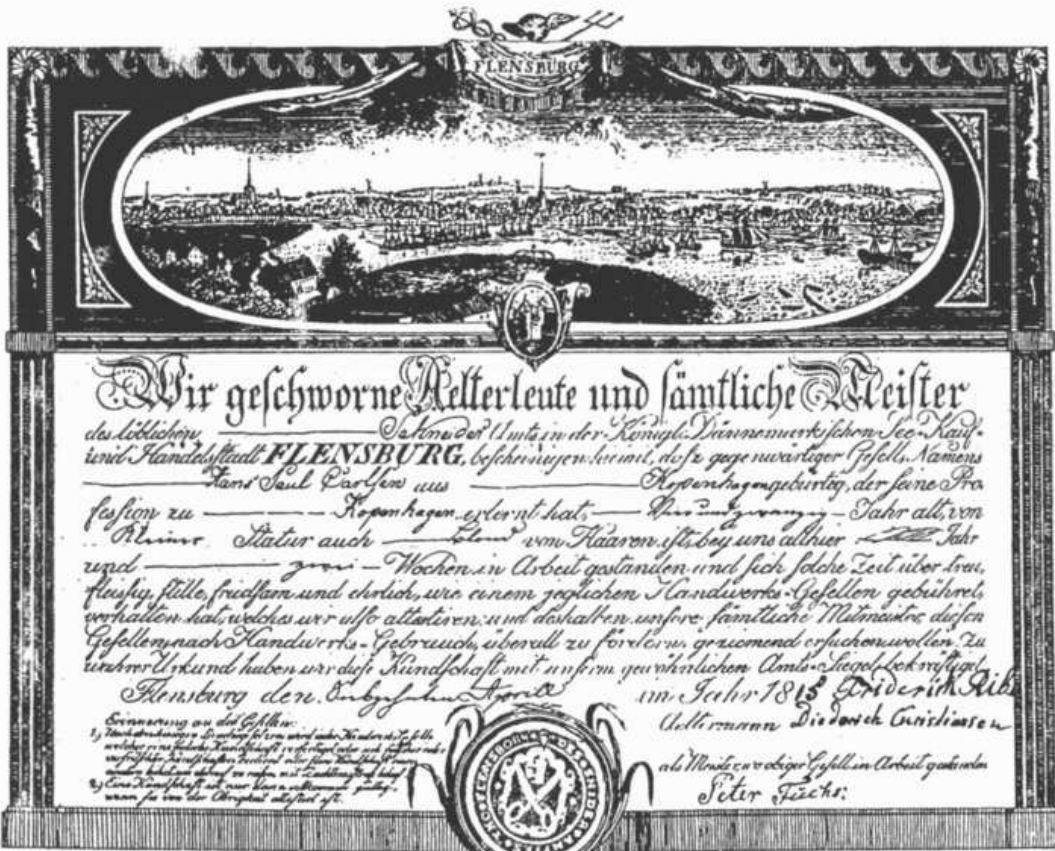 FLENSBURG
Wir geschworne Aelterleute und sämtliche Meister
des löblichen Schneider Amts in der Königl. Dännemarkischen See- Kauf-
und Handelsstadt FLENSBURG, bescheinigen hiemit, daß gegenwärtiger Gesell, Namens
Hans Paul Carlsen aus Kopenhagen gebürtig, der seine Pro
fession zu Kopenhagen erlernt hat, Vier und zwanzig Jahr alt, von
Kleiner Statur auch blond von Haaren ist, bey uns allhier Jahr
und zwei Wochen in Arbeit gestanden und sich solche Zeit über treu,
fleissig, stille, friedsam und ehrlich, wie einem jeglichen Handwerks-Gesellen gebühret,
verhalten hat, welches wir also attestiren, und deshalben unsere sämtliche Mitmeister, diesen
Gesellen nach Handwerks-Gebrauch, überall zu fördern, geziemend ersuchen wollen. Zu
wahrer Urkund haben wir diese Kundschaft mit unserm gewöhnlichen Amts-Siegel bekräftiget
Flensburg den Siebzehnten April im Jahr 1815 Friderich
Aeltermann Diederich Christiansen
Erinnerung an die Gesellen:
als Meister, wo obiger Gesell in Arbeit gestanden
Peter Fuchs:
2.) Eine Kundschaft ist nur dann vollkommen gültig,
wenn sie von der Obrigkeit attestirt ist.